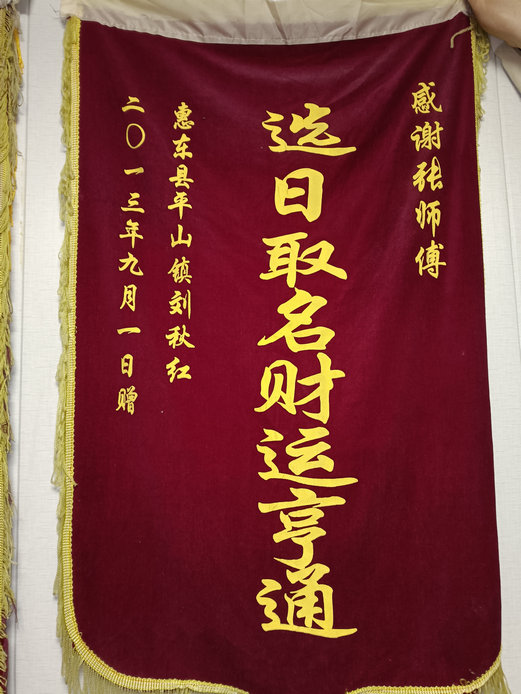 感谢张师傅
选日取名财运亨通
惠东县平山镇刘秋红
二〇一三年九月一日赠